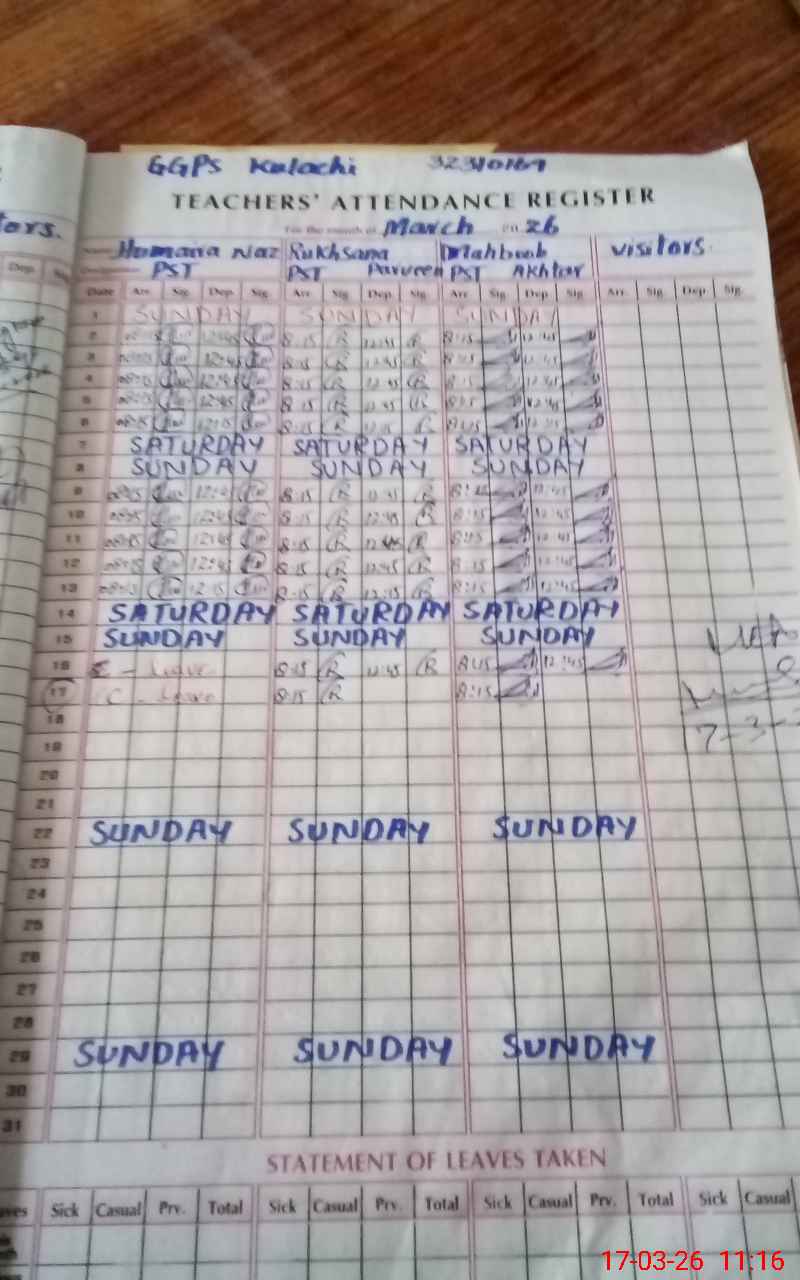 GGPS Kulachi 32310169
TEACHERS' ATTENDANCE REGISTER
For the month of March 20 26
Humaira Naz Rukhsana Mahboob Visitors.
PST PST Parveen PST Akhtar
Date Arr. Sig. Dep. Sig. Arr. Sig. Dep. Sig. Arr. Sig. Dep. Sig. Arr. Sig. Dep. Sig.
1 SUNDAY SUNDAY SUNDAY
2 08:15 12:45 8:15 R 12:45 R 8:15 12:45
3 08:15 12:45 8:15 R 12:45 R 8:15 12:45
4 08:15 12:45 8:15 R 12:45 R 8:15 12:45
5 08:15 12:45 8:15 R 12:45 R 8:15 12:45
6 08:15 12:15 8:15 R R 8:15
7 SATURDAY SATURDAY SATURDAY
8 SUNDAY SUNDAY SUNDAY
9 08:15 12:45 8:15 R 12:45 R 8:15 12:45
10 08:15 12:45 8:15 R 12:45 R 8:15 12:45
11 08:15 12:45 8:15 R 12:45 R 8:15 12:45
12 08:15 12:45 8:15 R 12:45 R 8:15 12:45
13 08:15 12:15 8:15 R 12:15 R 8:15
14 SATURDAY SATURDAY SATURDAY
15 SUNDAY SUNDAY SUNDAY
16 C - Leave 8:15 R 12:45 R 8:15 12:45
17 C - Leave 8:15 R 8:15
18
19
20
21
22 SUNDAY SUNDAY SUNDAY
23
24
25
26
27
28
29 SUNDAY SUNDAY SUNDAY
30
31
STATEMENT OF LEAVES TAKEN
Sick Casual Prv. Total Sick Casual Prv. Total Sick Casual Prv. Total Sick Casual
17-03-26 11:16